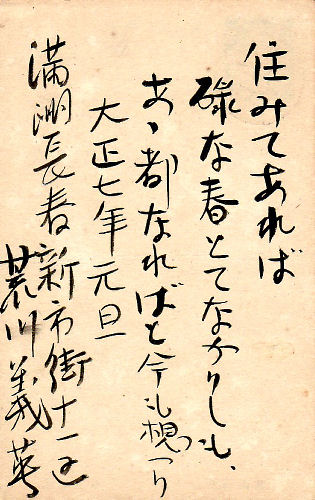 住みてあれば
碌な春とてなかりしも、
あゝ都なればと今も想つり
大正七年元旦
満洲長春新市街十一区
荒川義英